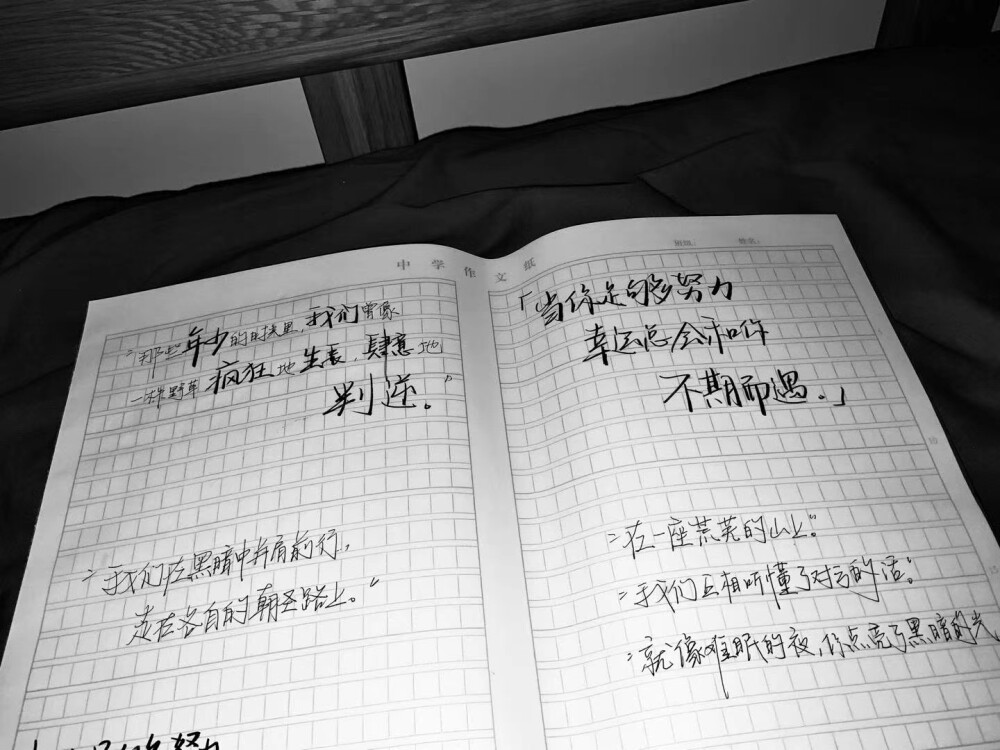 中学作文纸
班级： 姓名：
"那些年少的时光里,我们曾像
一株野草疯狂地生长,肆意地
判逆。"
"我们在黑暗中并肩前行,
走在各自的朝圣路上。"
「当你足够努力
幸运总会和你
不期而遇.」
"在一座荒芜的山上"
"我们互相听懂了对方的话"
"就像难眠的夜,你点亮了黑暗的光
努力